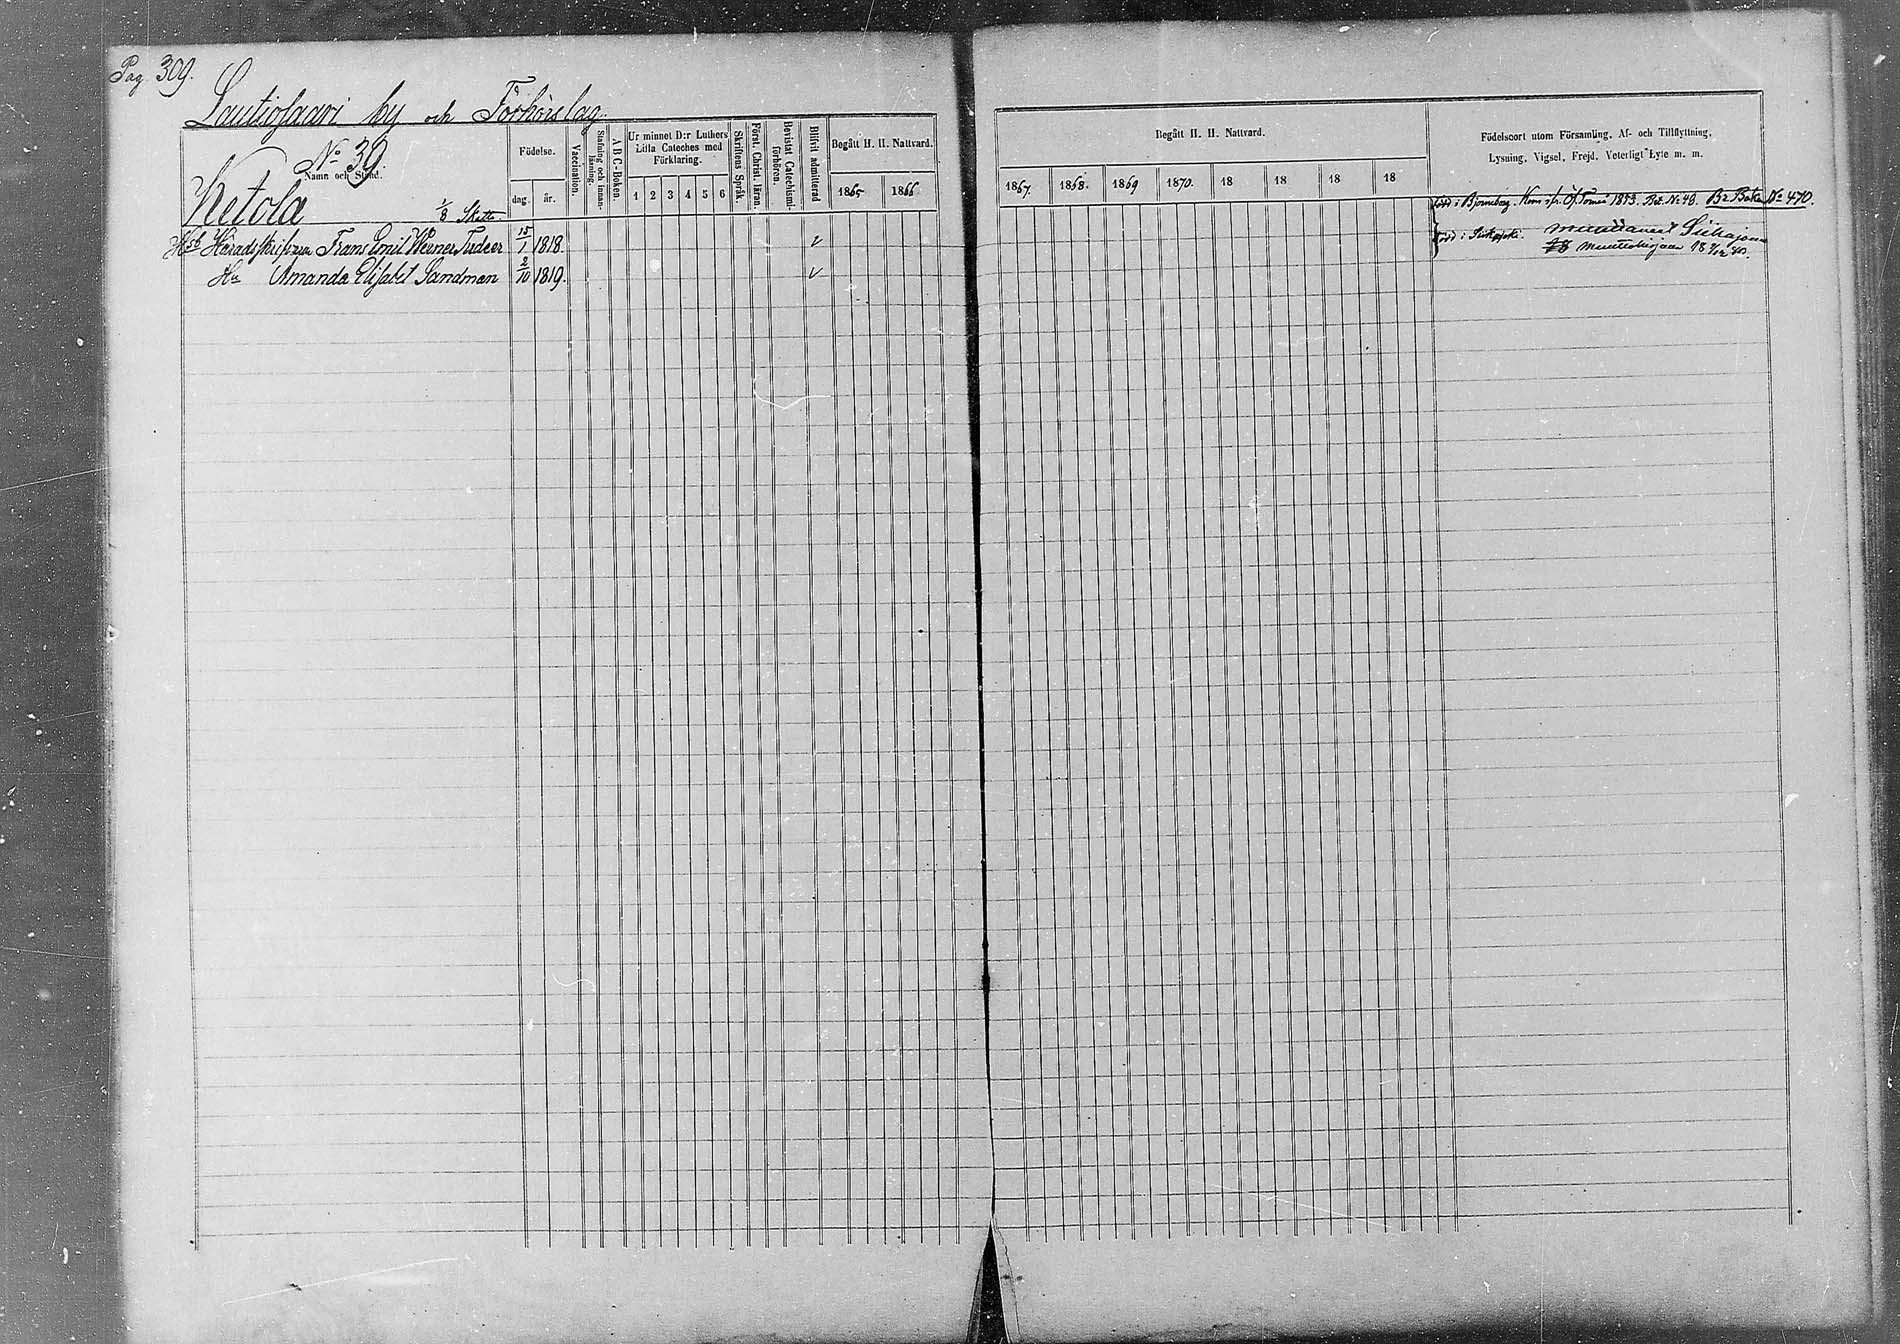 Pag. 309.
Lautiosaari by och Förhörslag.
No 39.
Namn och Stånd.
Ketola 1/8 Skatt
Födelse.
dag. år.
Vaccination.
Stafning och innanläsning.
A B C-Boken.
Ur minnet D:r Luthers
Lilla Cateches med
Förklaring.
1 2 3 4 5 6
Skriftens Språk.
Först. Christ. läran.
Bevistat Catechismi-
förhören.
Blifvit admitterad
Begått H. H. Nattvard.
1865 1866
Häradsskrifvaren Frans Emil Werner Tudeer 15/1 1818.
Hu Amanda Elisabet Sandman 2/10 1819.
Begått H. H. Nattvard.
1867. 1868. 1869 1870. 18 18 18 18
Födelseort utom Församling, Af- och Tillflyttning,
Lysning, Vigsel, Frejd, Veterligt Lyte m. m.
född i Björneborg. Kom fr. Öf. Torneå 1853. Bet. No 40. No 470.
född i Siikajoki.